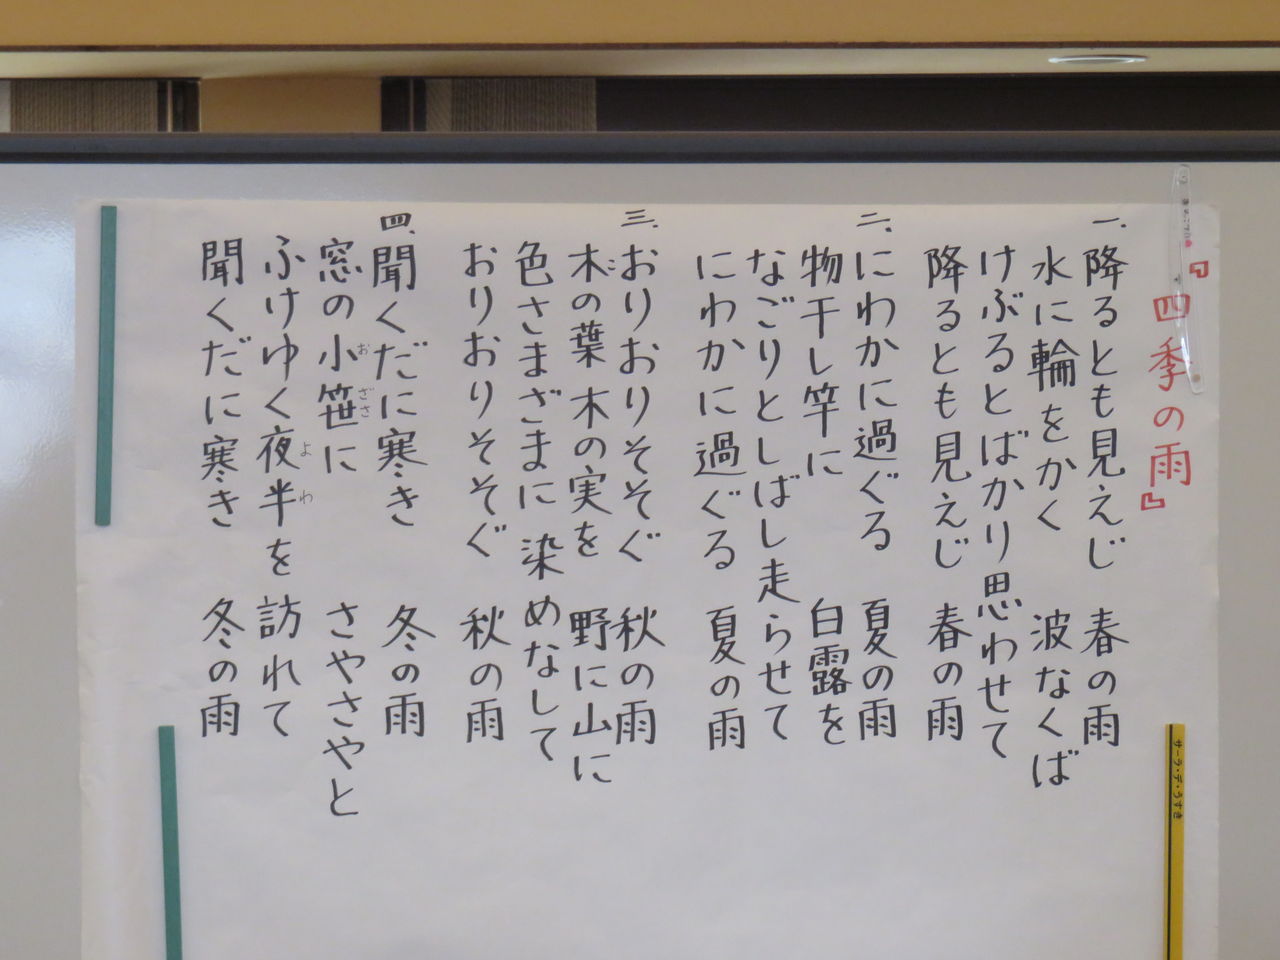 『四季の雨』
一、降るとも見えじ 春の雨
水に輪をかく 波なくば
けぶるとばかり思わせて
降るとも見えじ 春の雨
二、にわかに過ぐる 夏の雨
物干し竿に 白露を
なごりとしばし走らせて
にわかに過ぐる 夏の雨
三、おりおりそそぐ 秋の雨
木の葉 木の実を 野に山に
色さまざまに 染めなして
おりおりそそぐ 秋の雨
四、聞くだに寒き 冬の雨
窓の小笹に さやさやと
おざさ
ふけゆく夜半を 訪れて
よわ
聞くだに寒き 冬の雨
サーラ・デ・うすき